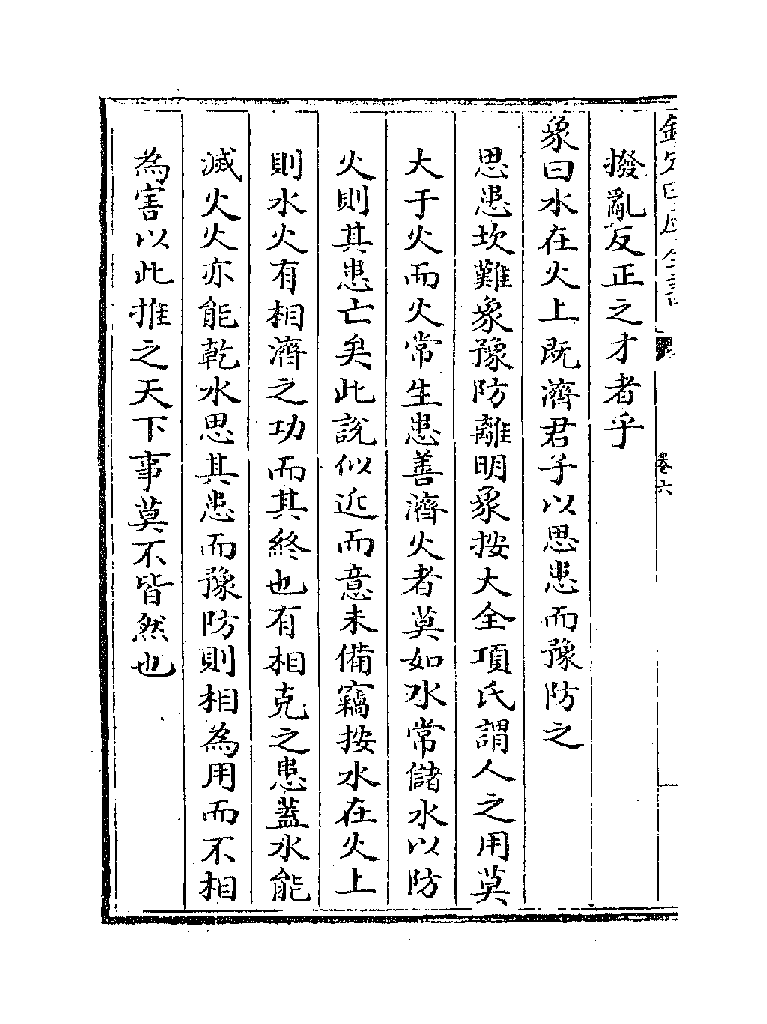 欽定四庫全書
卷六
撥亂反正之才者乎
象曰水在火上既濟君子以思患而豫防之
思患坎難象豫防離明象按大全項氏謂人之用莫
大于火而火常生患善濟火者莫如水常儲水以防
火則其患亡矣此説似近而意未備竊按水在火上
則水火有相濟之功而其終也有相克之患蓋水能
滅火火亦能乾水思其患而豫防則相為用而不相
為害以此推之天下事莫不皆然也